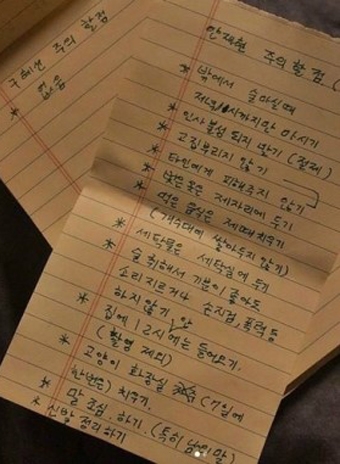 구혜선 주의 할 점
* 없음
안재현 주의 할 점 (
* 밖에서 술마실때
저녁 시까지만 마시기
인사불성 되지 말기 (절제)
* 고집부리지 않기
* 타인에게 피해주지 않기
* 벗은 옷은 제자리에 두기
* 먹은 음식은 제때 치우기
(개수대에 쌓아두지 않기)
* 세탁물은 세탁실에 두기
* 술 취해서 기분이 좋아도
소리 지르거나 손찌검, 폭력 등
하지 않기
* 집에 12시 안에는 들어오기.
(촬영 제외)
* 고양이 화장실 (7일에
한번은) 치우기.
* 말 조심 하기 (특히 남의 말)
* 신발 정리하기